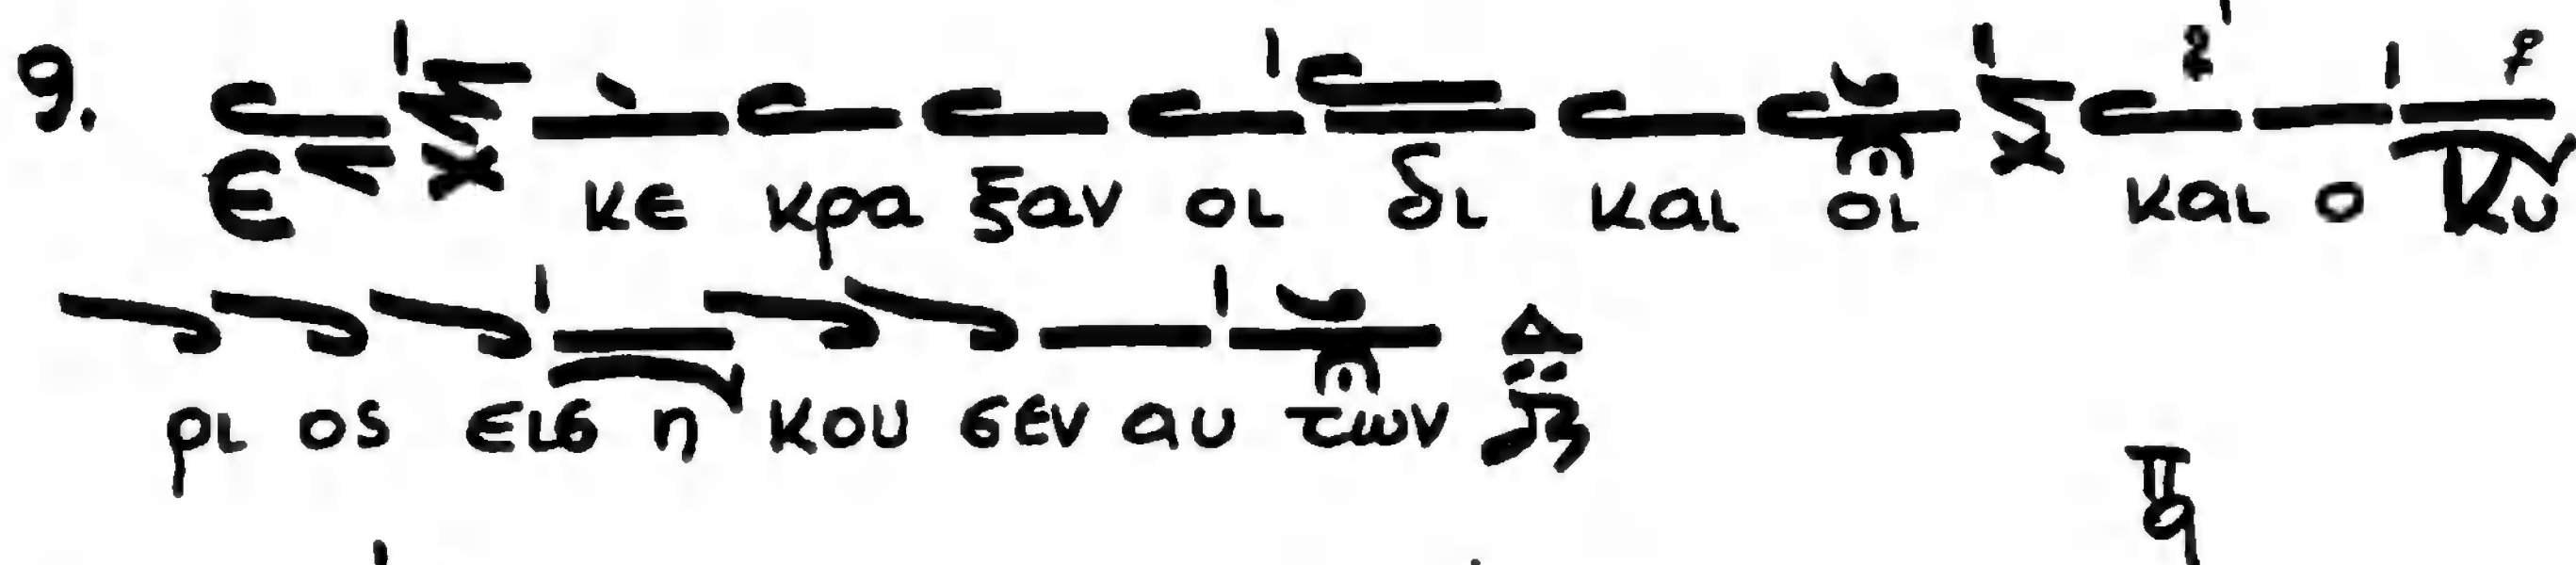 9.
Ε κε κρα ξαν οι δι και οι και ο Κυ
ρι ος εισ η κου σεν αυ των